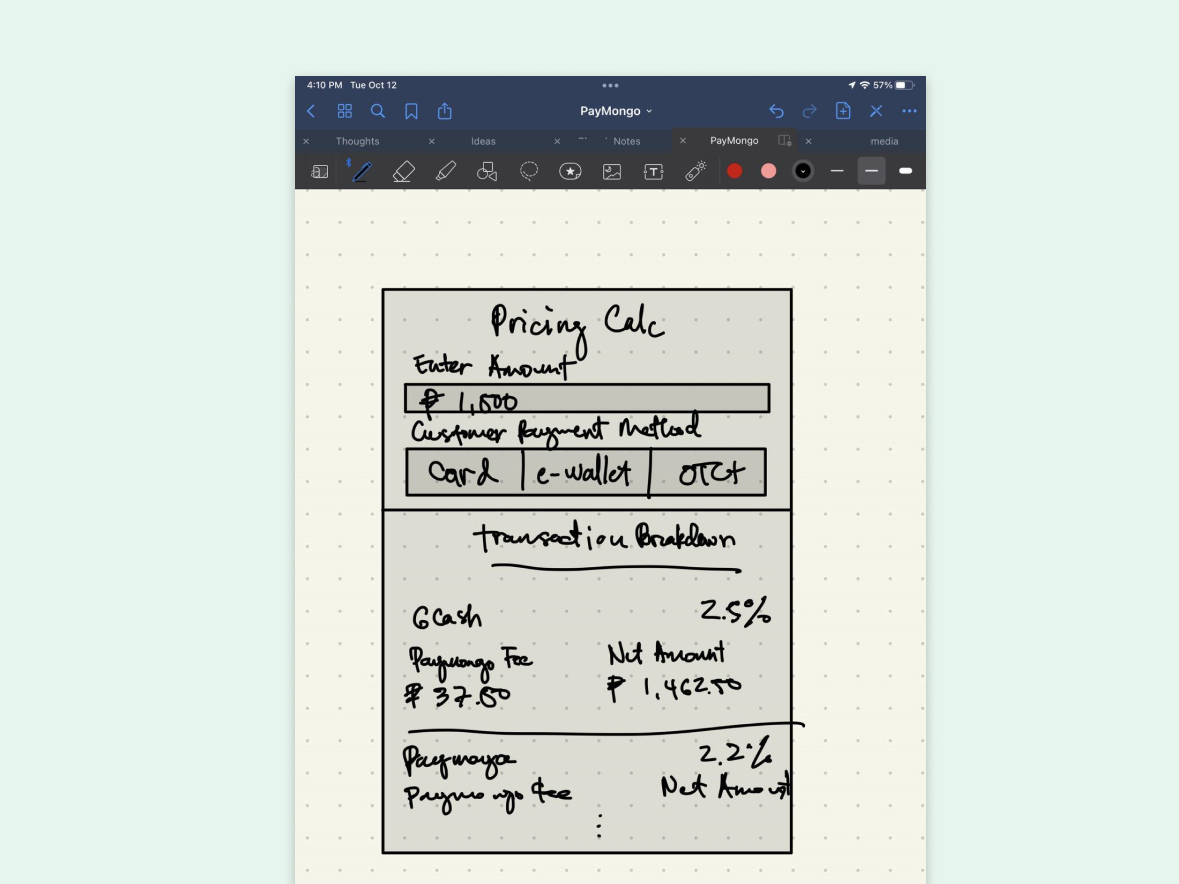 4:10 PM Tue Oct 12 57%
PayMongo
Thoughts Ideas Notes PayMongo media
T
Pricing Calc
Enter Amount
₱ 1,500
Customer Payment Method
Card e-wallet OTC+
Transaction Breakdown
GCash 2.5%
Paymongo Fee Net Amount
₱ 37.50 ₱ 1,462.50
Paymaya 2.2%
Paymongo fee Net Amount
⋮